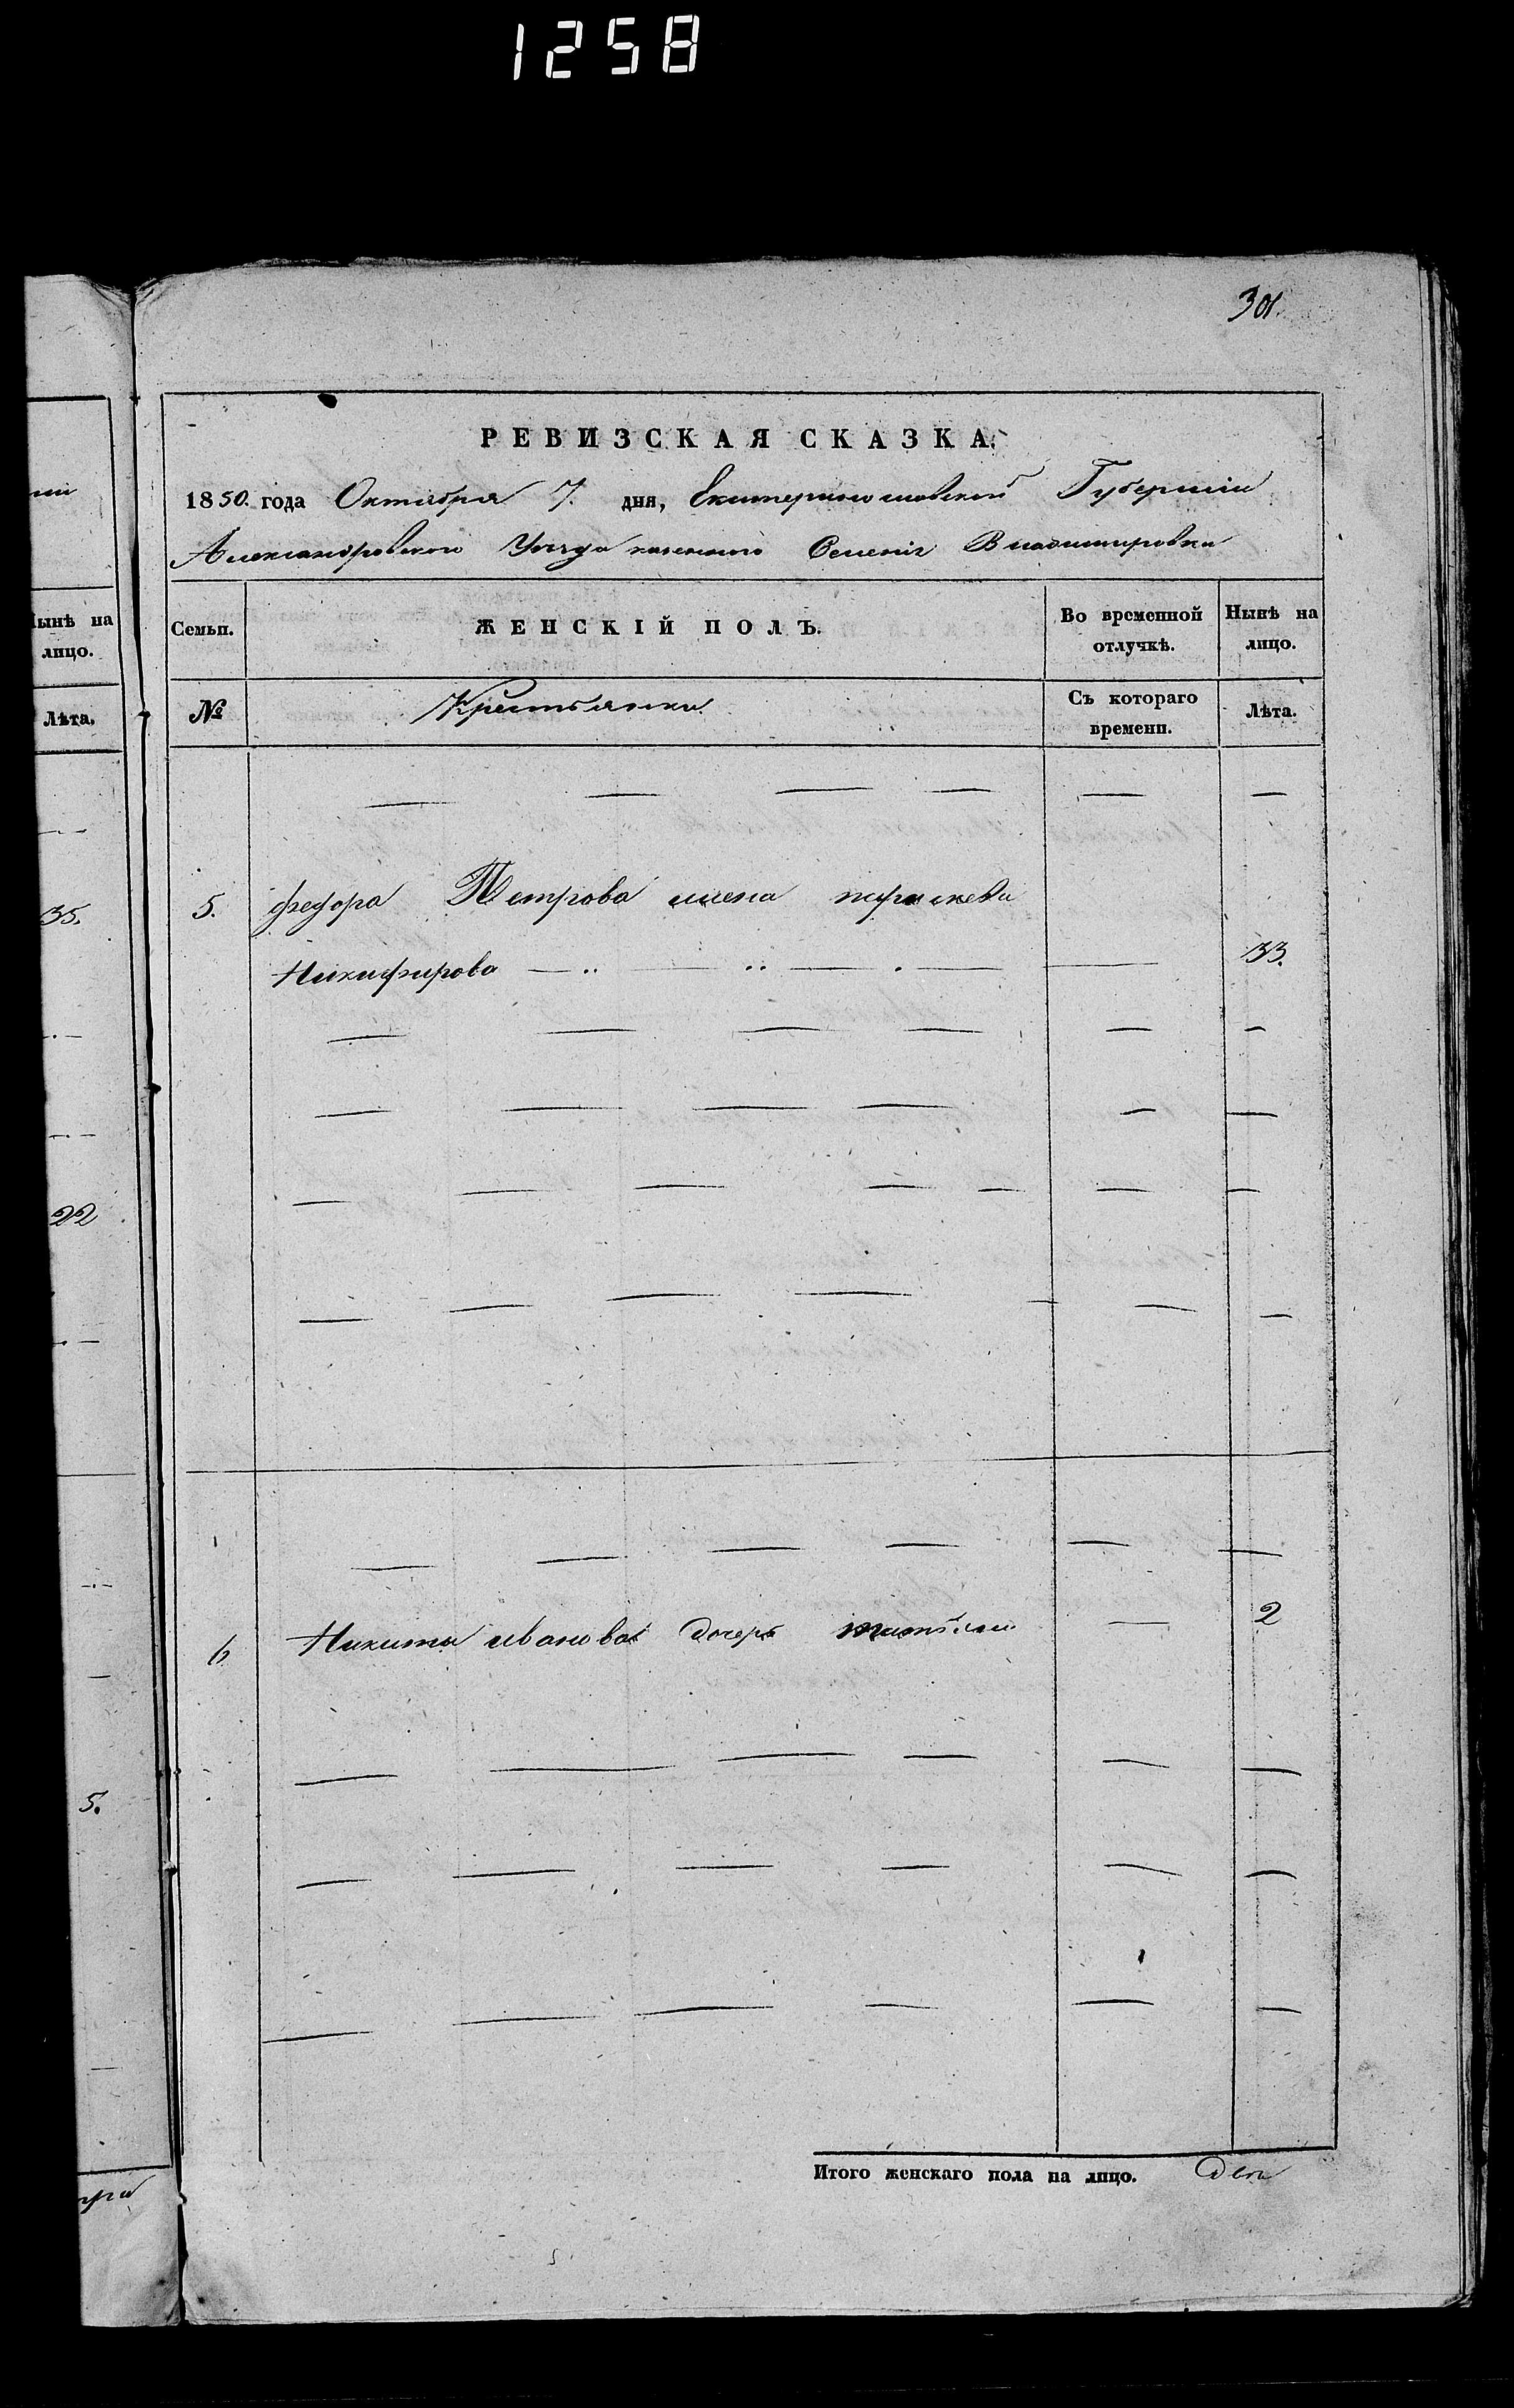 1258
301.
нынѣ на
лицо.
Лѣта.
35.
22
5.
РЕВИЗСКАЯ СКАЗКА.
1850. года Октября 7. дня, Екатеринославской Губерніи
Александровского Уезда казенного Селенія Владимировки
Семьи. ЖЕНСКІЙ ПОЛЪ. Во временной отлучкѣ. Нынѣ на лицо.
№ Крестьянки Съ котораго времени. Лѣта.
5. федора Петрова жена
Никифирова 33.
6 Никиты иванова дочерь 2
Итого женскаго пола на лицо. две